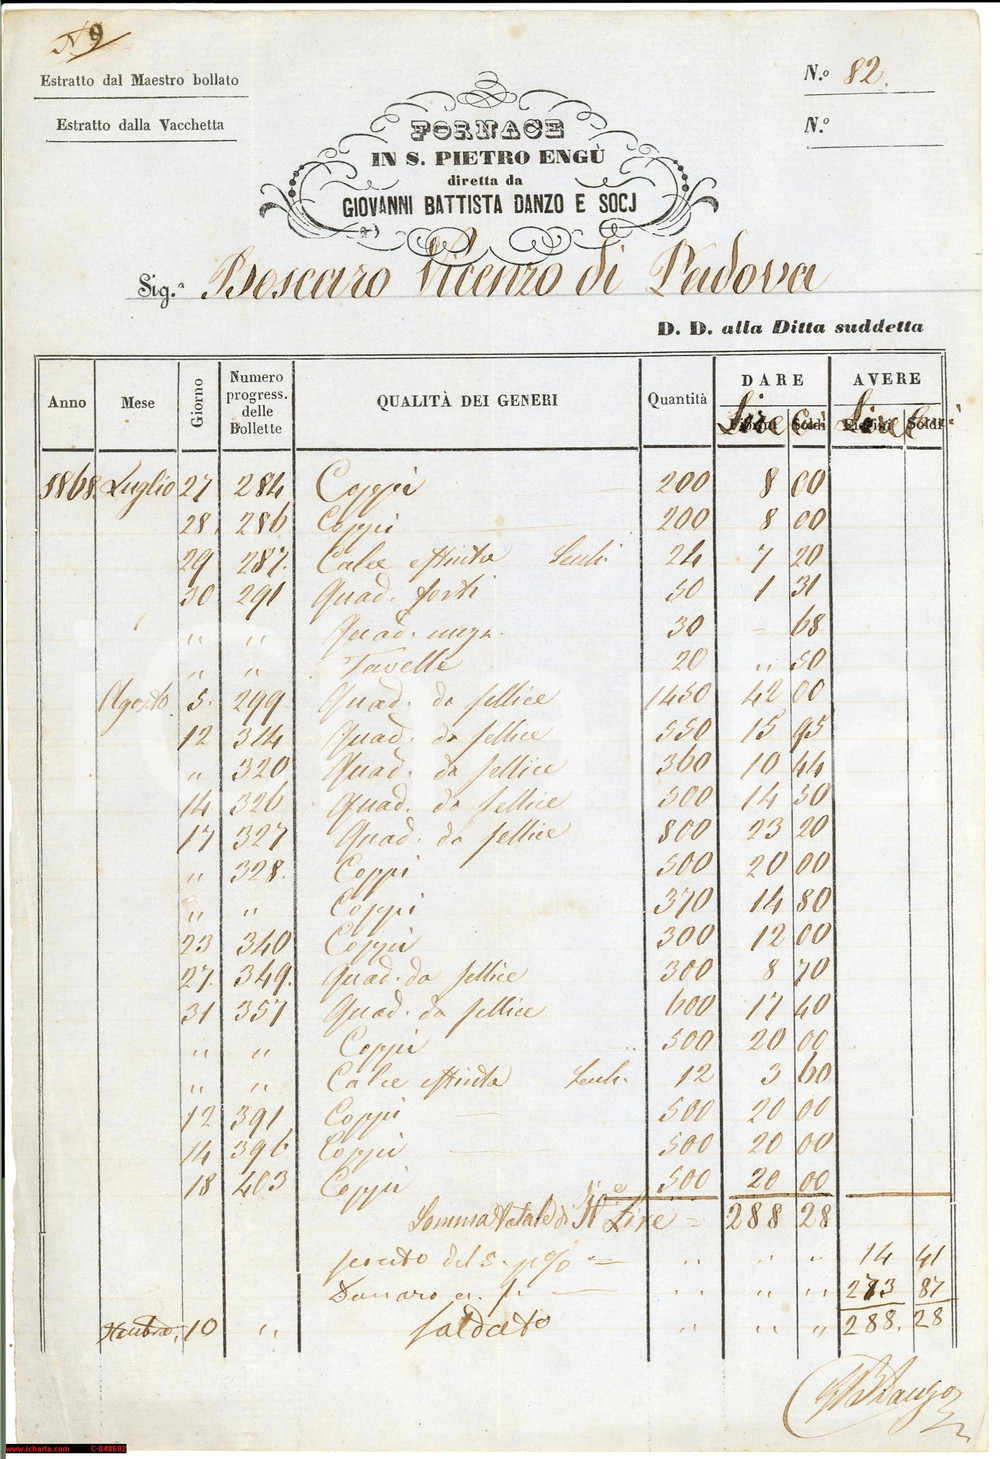 N 9
Estratto dal Maestro bollato
Estratto dalla Vacchetta
N.º 82.
N.º
FORNACE
IN S. PIETRO ENGÙ
diretta da
GIOVANNI BATTISTA DANZO E SOCJ
Sig.r Boscaro Vicenzo di Padova
D. D. alla Ditta suddetta
Anno Mese Giorno Numero progress. delle Bollette QUALITÀ DEI GENERI Quantità DARE AVERE
Lire Lire
Fiorini Soldi Fiorini Soldi
1868 Luglio 27 284 Coppi 200 8 00
28 286 Coppi 200 8 00
29 287. Calce estinta 24 7 20
30 291 Quad. forti 50 1 31
" " Quad. 30 = 68
" " Tavelle 20 " 50
Agosto 5. 299 Quad. da fellice 1450 42 00
12 314 Quad. da fellice 550 15 95
" 320 Quad. da fellice 360 10 44
14 326 Quad. da fellice 500 14 50
17 327 Quad. da fellice 800 23 20
" 328. Coppi 500 20 00
" " Coppi 370 14 80
23 340 Coppi 300 12 00
27. 349. Quad. da fellice 300 8 70
31 357 Quad. da fellice 600 17 40
" " Coppi 500 20 00
" " Calce estinta 12 3 60
12 391 Coppi 500 20 00
14 396 Coppi 500 20 00
18 403 Coppi 500 20 00
Somma totale di Lire = 288 28
del 5. p% = " " " 14 41
Danaro = " " " 273 87
10 " saldato " " " 288. 28
GB Danzo
www.icharta.com C-048682